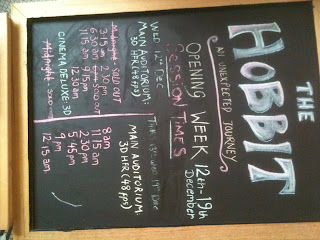 THE
HOBBIT
AN UNEXPECTED JOURNEY
OPENING WEEK 12th-19th
December
SESSION TIMES
WED 12th DEC
MAIN AUDITORIUM.
3D HFR (48fps)
Midnight SOLD OUT
3.15am 2.30pm
6.30am SOLD OUT
11.15am 9.15pm
12.30am
CINEMA DELUXE: 3D
Midnight SOLD OUT
19th Dec
MAIN AUDITORIUM.
3D HFR (48fps)
8am
11.15am
2.30pm
5.45pm
9pm
12.15am